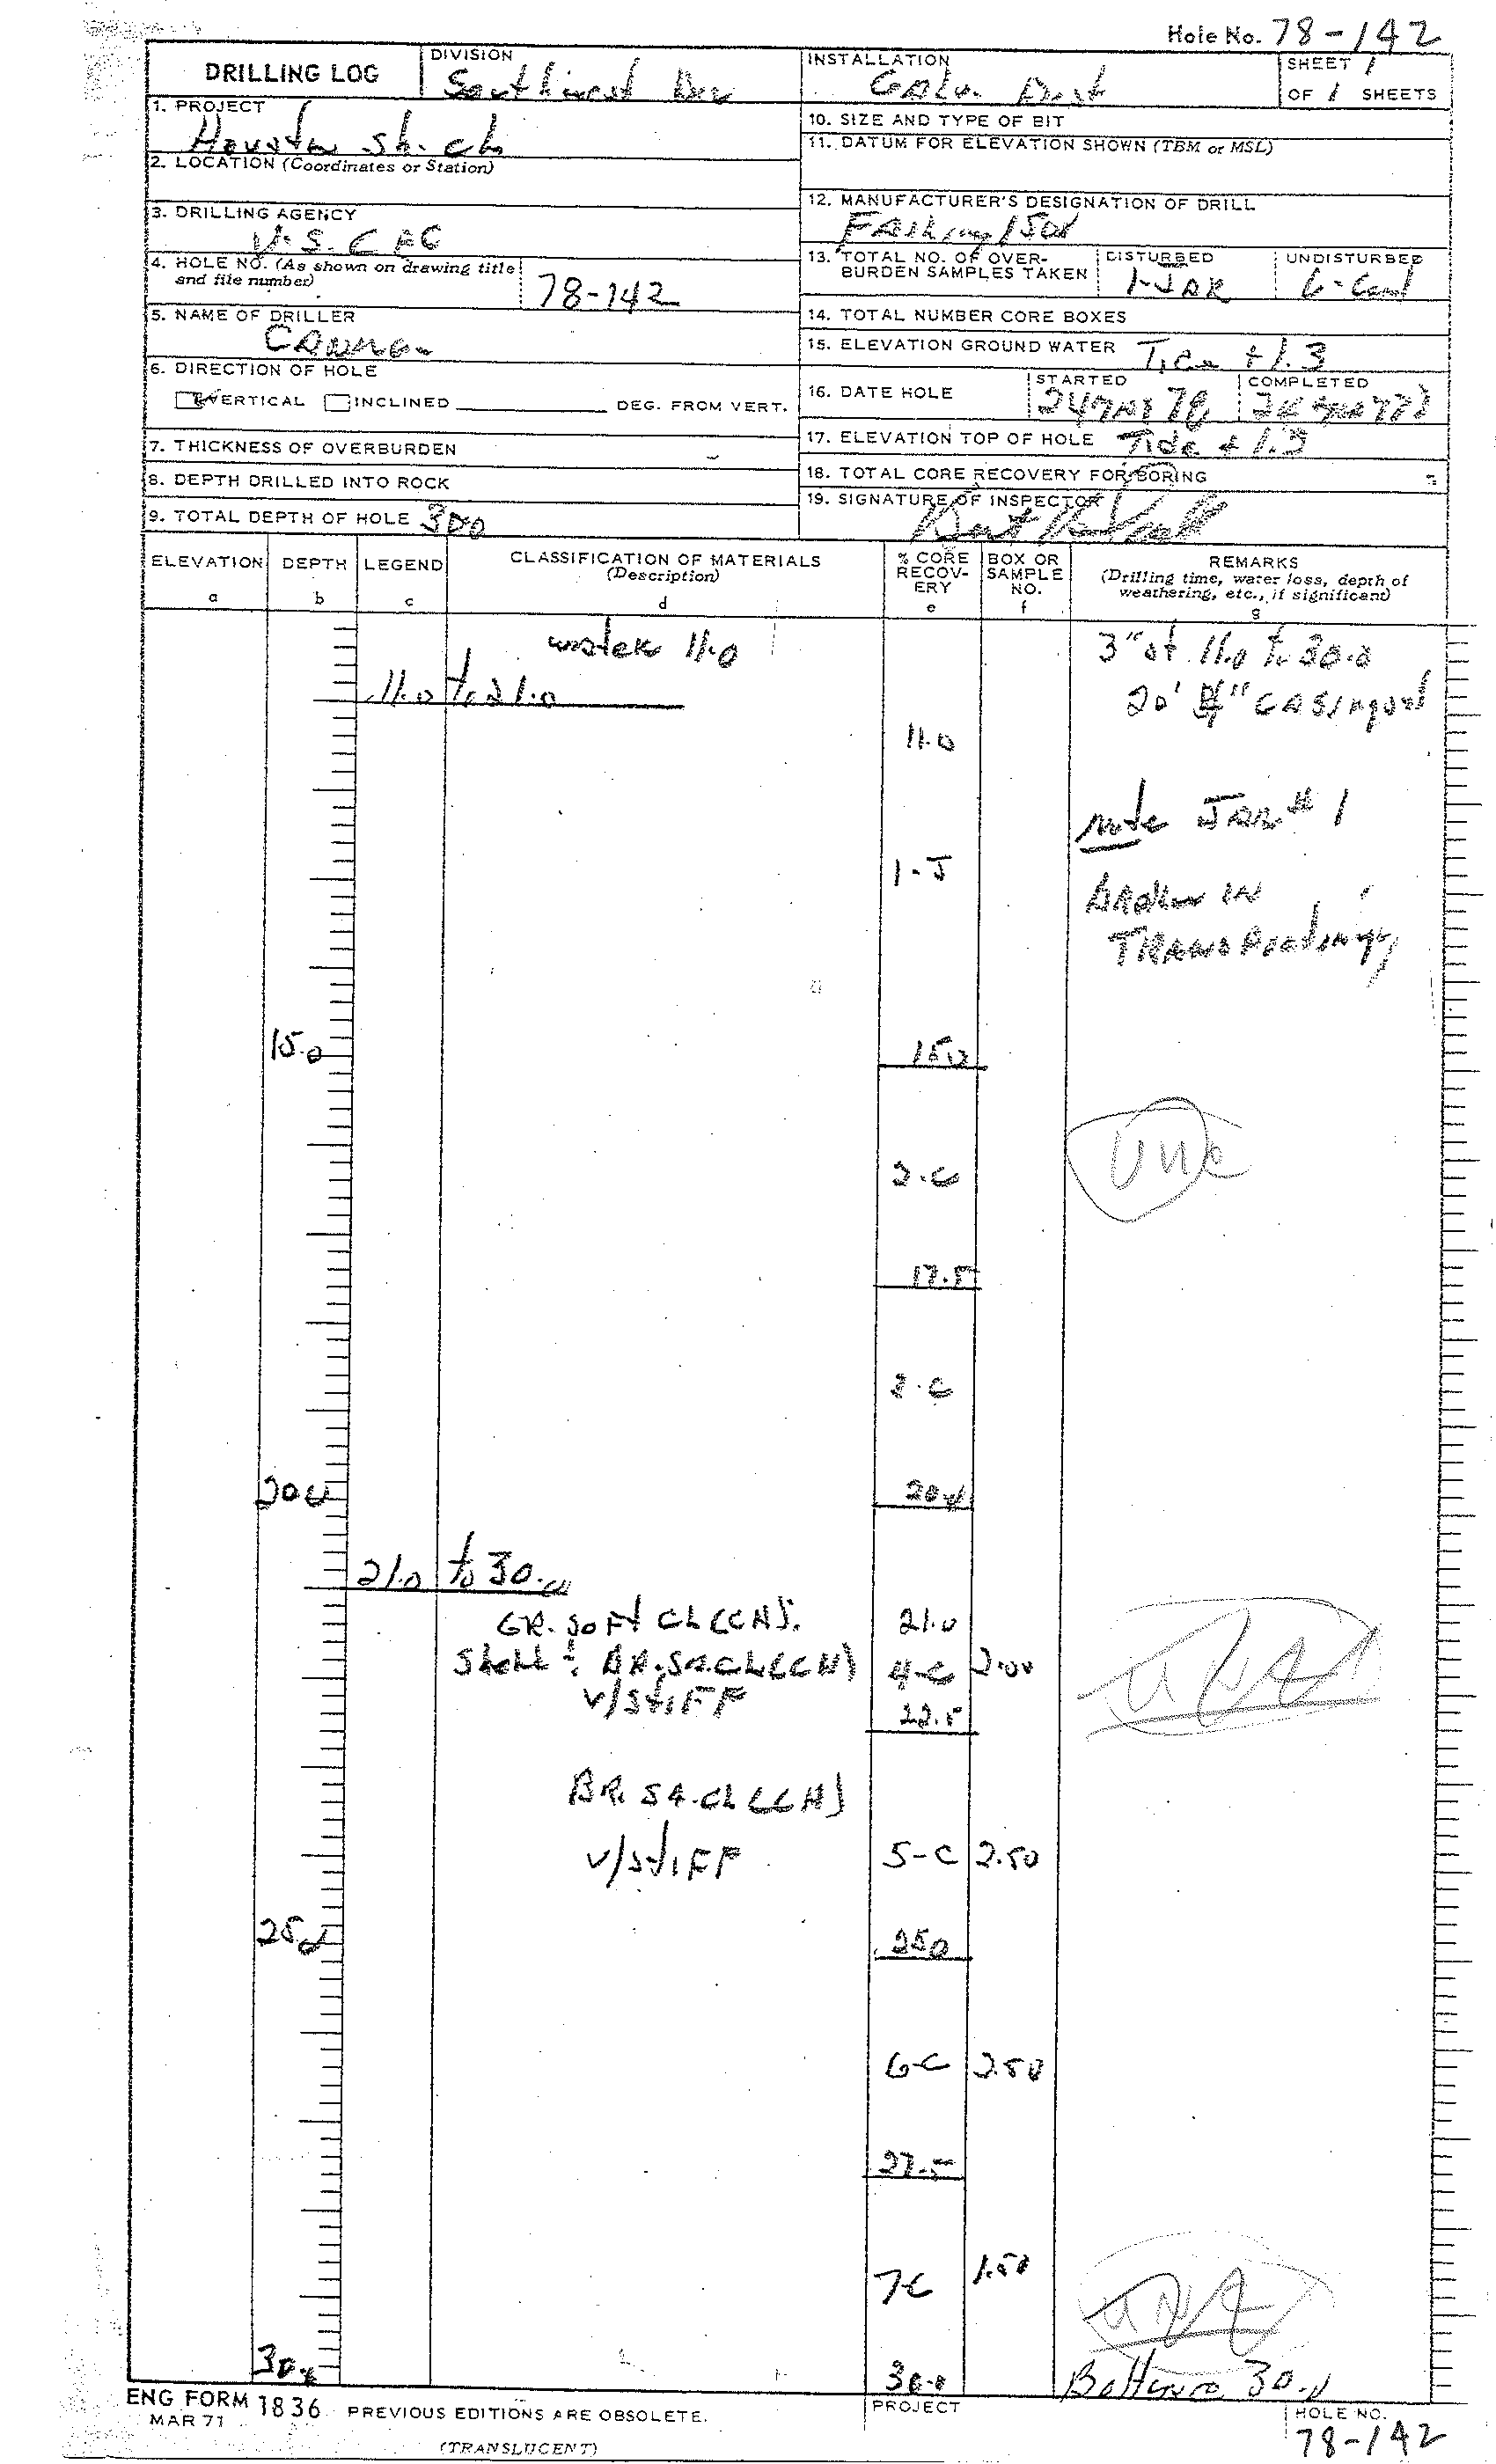 Hole No. 78-142
DRILLING LOG
DIVISION
Southwest Div
INSTALLATION
Galv. Dist
SHEET 1
OF 1 SHEETS
1. PROJECT
Houston Sh. Ch
2. LOCATION (Coordinates or Station)
3. DRILLING AGENCY
U.S. C E C
4. HOLE NO. (As shown on drawing title
and file number)
78-142
5. NAME OF DRILLER
6. DIRECTION OF HOLE
VERTICAL INCLINED DEG. FROM VERT.
7. THICKNESS OF OVERBURDEN
8. DEPTH DRILLED INTO ROCK
9. TOTAL DEPTH OF HOLE 30.0
10. SIZE AND TYPE OF BIT
11. DATUM FOR ELEVATION SHOWN (TBM or MSL)
12. MANUFACTURER'S DESIGNATION OF DRILL
Failing 1500
13. TOTAL NO. OF OVER-
BURDEN SAMPLES TAKEN
DISTURBED
1-JAR
UNDISTURBED
6-Cans
14. TOTAL NUMBER CORE BOXES
15. ELEVATION GROUND WATER Tide +1.3
16. DATE HOLE
STARTED
COMPLETED
17. ELEVATION TOP OF HOLE Tide +1.3
18. TOTAL CORE RECOVERY FOR BORING
19. SIGNATURE OF INSPECTOR
ELEVATION
a
DEPTH
b
LEGEND
c
CLASSIFICATION OF MATERIALS
(Description)
d
% CORE
RECOV-
ERY
e
BOX OR
SAMPLE
NO.
f
REMARKS
(Drilling time, water loss, depth of
weathering, etc., if significant)
g
water 11.0
3" at 11.0 to 30.0
11.0 to 21.0
20' 4" CASING used
11.0
note JAR # 1
1-J
Broken in
TRANSPorting
15.0
15.0
2-C
UNC
17.5
3-C
20.0
20.0
21.0 to 30.0
GR. SOFT CL (CH).
21.0
Shell & BR. SA. CL (CH)
4-C 2.00
V/STIFF
22.5
BR. SA. CL (CH)
V/STIFF
5-C 2.50
25.0
25.0
6-C 2.50
27.5
7-C 1.50
30.0
30.0
Bottom 30.0
ENG FORM 1836 PREVIOUS EDITIONS ARE OBSOLETE.
MAR 71
(TRANSLUCENT)
PROJECT
HOLE NO.
78-142